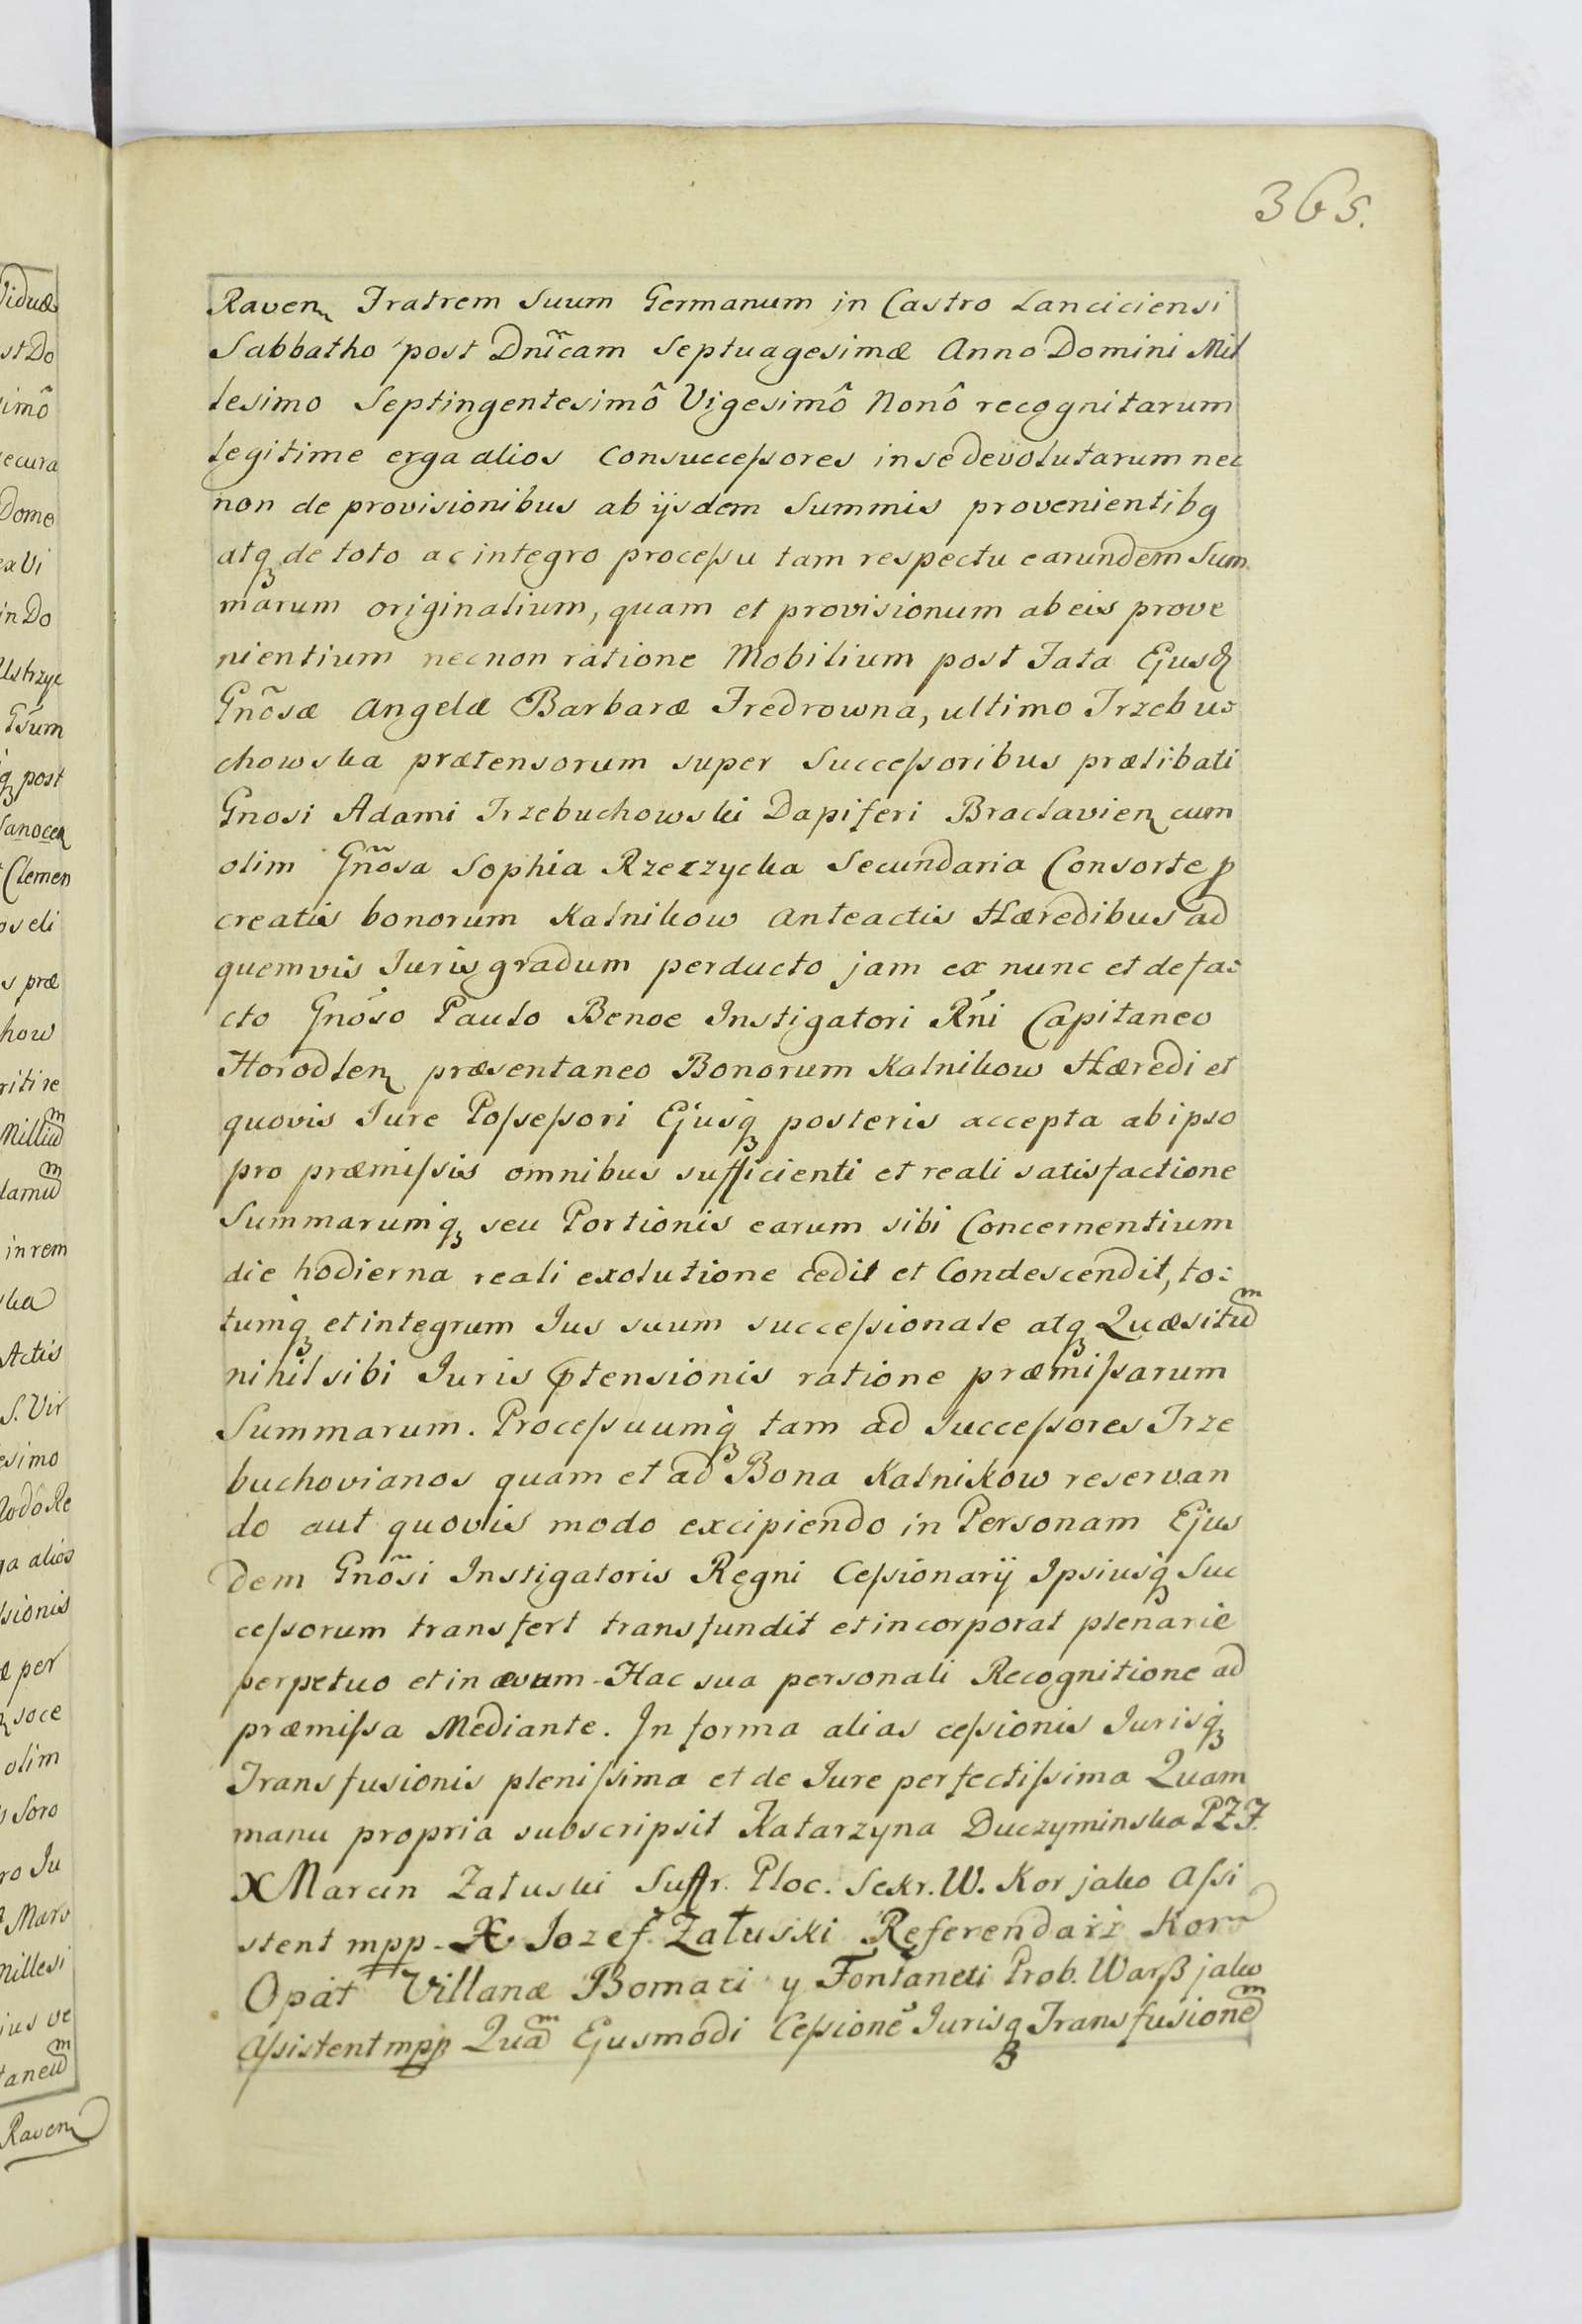 365.
Raven Fratrem Suum Germanum in Castro Lanciciensi
Sabbatho post Dnicam Septuagesimæ Anno Domini Mil
lesimo Septingentesimô Vigesimô Nonô recognitarum
legitime erga alios Consuccessores in se devolutarum nec
non de provisionibus ab ijsdem Summis provenientibq
atq de toto ac integro processu tam respectu earundem Sum
marum originalium, quam et provisionum ab eis prove
nientium necnon ratione Mobilium post Fata Ejusd
Gnosæ Angelæ Barbaræ Fredrowna, ultimo Trzebu:
chowska prætensorum super Successoribus prælibati
Gnosi Adami Trzebuchowski Dapiferi Braclavien cum
olim Gnosa Sophia Rzeczycka Secundaria Consorte p
creatis bonorum Kalnikow Anteactis Hæredibus ad
quemvis Juris gradum perducto jam ex nunc et de fa:
cto Gnoso Paulo Benoe Instigatori Rni Capitaneo
Horodlen præsentaneo Bonorum Kalnikow Hæredi et
quovis Jure Possessori Ejusq posteris accepta ab ipso
pro præmissis omnibus sufficienti et reali satisfactione
Summarumq seu Portionis earum sibi Concernentium
die hodierna reali exolutione cedit et Condescendit, to:
tumq et integrum Jus suum successionale atq Quæsitum
nihil sibi Juris ptensionis ratione præmissarum
Summarum. Processuumq tam ad Successores Trze
buchovianos quam et ad Bona Kalnikow reservan
do aut quovis modo excipiendo in Personam Ejus
dem Gnosi Instigatoris Regni Cessionarij Ipsiusq Suc
cessorum transfert transfundit et incorporat plenarie
perpetuo et in ævum - Hac sua personali Recognitione ad
præmissa Mediante. In forma alias cessionis Jurisq
Transfusionis plenissima et de Jure perfectissima Quam
manu propria subscripsit Katarzyna Duczyminska PZF.
X Marcin Załuski Suffr. Ploc. Sekr. W. Kor jako Assi
stent mpp - X Jozef Załuski Referendarz Kor
Opat Villanæ Bomari y Fontaneti Prob. Warß jako
Assistent mpp Quam Ejusmodi Cessionê Jurisq Transfusionem